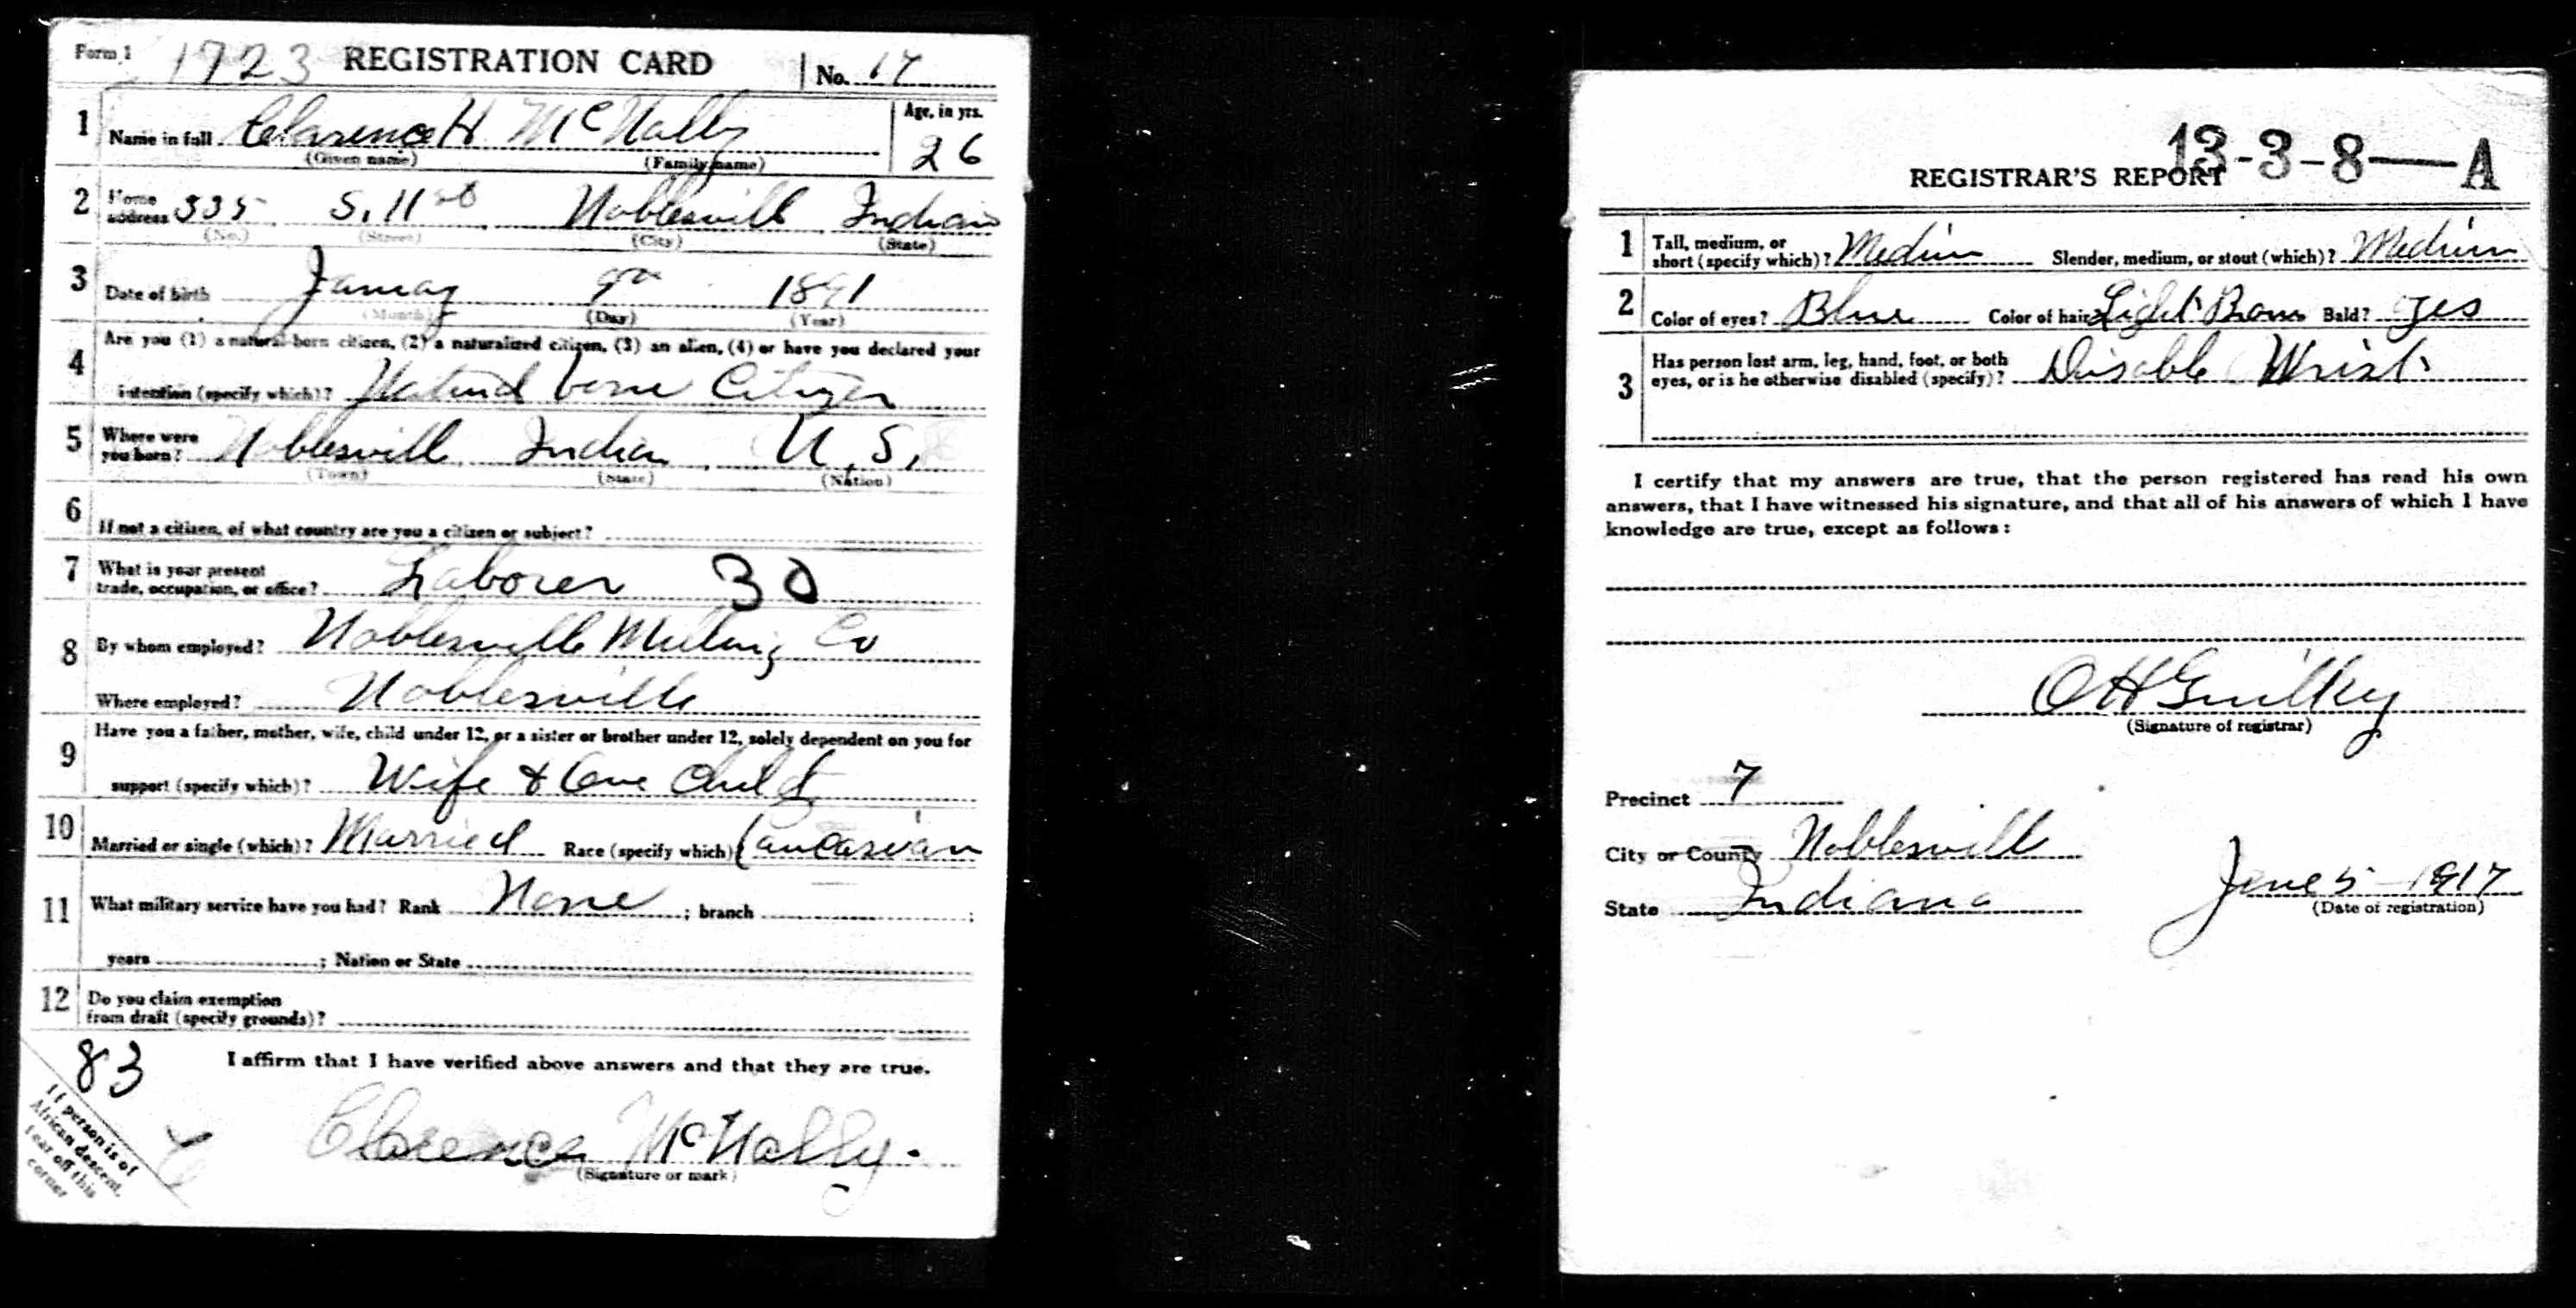 Form 1 1723 REGISTRATION CARD No. 17
1 Name in full Clarence H McNally Age, in yrs.
(Given name) (Family name) 26
2 Home address 335 S. 11 st Noblesvill Indian
(No.) (Street) (City) (State)
3 Date of birth 1891
(Month) (Day) (Year)
4 Are you (1) a natural-born citizen, (2) a naturalized citizen, (3) an alien, (4) or have you declared your
intention (specify which)? born Citizen
5 Where were you born? Noblesvill Indian U.S.
(Town) (State) (Nation)
6 If not a citizen, of what country are you a citizen or subject?
7 What is your present
trade, occupation, or office? Laborer 30
8 By whom employed? Noblesville Milling Co
Where employed? Noblesville
9 Have you a father, mother, wife, child under 12, or a sister or brother under 12, solely dependent on you for
support (specify which)? Wife & One Child
10 Married or single (which)? Married Race (specify which) Caucasian
11 What military service have you had? Rank None ; branch ;
years ; Nation or State
12 Do you claim exemption
from draft (specify grounds)?
83 I affirm that I have verified above answers and that they are true.
Clarence McNally.
(Signature or mark)
If person is of
African descent,
tear off this
corner
13-3-8-A
REGISTRAR'S REPORT
1 Tall, medium, or
short (specify which)? Medium Slender, medium, or stout (which)? Medium
2 Color of eyes? Blue Color of hair Light Brown Bald? yes
3 Has person lost arm, leg, hand, foot, or both
eyes, or is he otherwise disabled (specify)? Disable Wrist
I certify that my answers are true, that the person registered has read his own
answers, that I have witnessed his signature, and that all of his answers of which I have
knowledge are true, except as follows:
(Signature of registrar)
Precinct 7
City or County Noblesvill
State Indiana June 5 - 1917
(Date of registration)